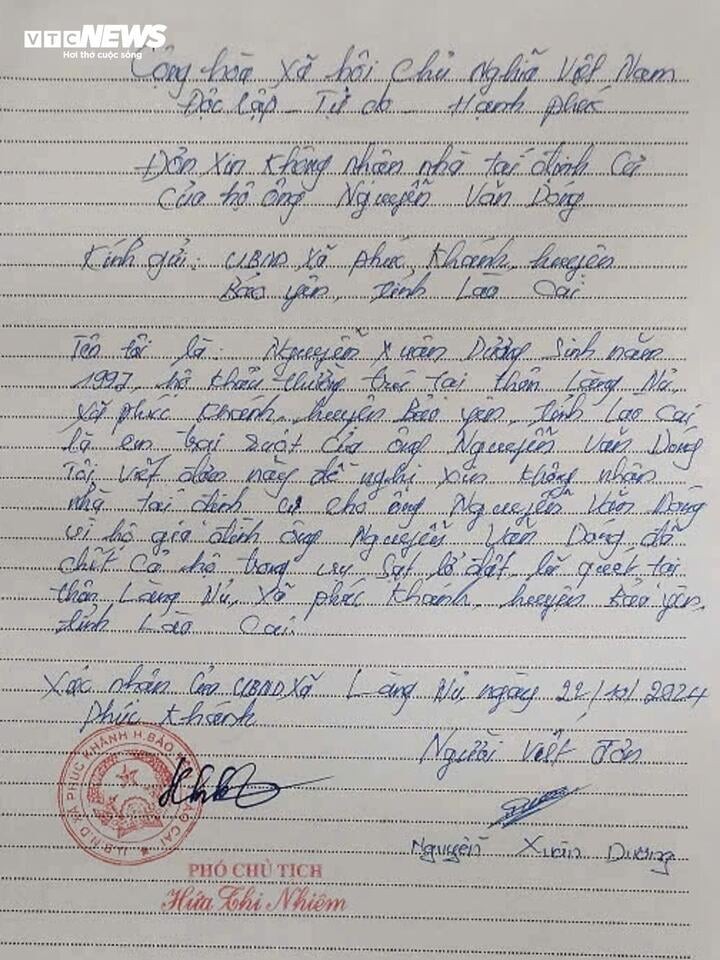 VTC NEWS
Hơi thở cuộc sống
Cộng hòa Xã hội Chủ Nghĩa Việt Nam
Độc lập - Tự do - Hạnh phúc
Đơn Xin không nhận nhà tái định cư
Của hộ ông Nguyễn Văn Dóng
Kính gửi: UBND Xã Phúc Khánh, huyện
Bảo Yên, tỉnh Lào Cai
Tên tôi là: Nguyễn Xuân Dương Sinh năm
1997, hộ khẩu thường trú tại thôn Làng Nủ,
Xã Phúc Khánh, huyện Bảo Yên, tỉnh Lào Cai
là em trai ruột của ông Nguyễn Văn Dóng
Tôi viết đơn này đề nghị xin không nhận
nhà tái định cư cho ông Nguyễn Văn Dóng
vì hộ gia đình ông Nguyễn Văn Dóng đã
chết cả hộ trong vụ Sạt lở đất, lũ quét tại
thôn Làng Nủ, Xã Phúc Khánh, huyện Bảo Yên,
tỉnh Lào Cai.
Xác nhận của UBND Xã Làng Nủ, ngày 22/10/2024
Phúc Khánh
Người viết đơn
U.B.N.D XÃ PHÚC KHÁNH H.BẢO LÀO CAI
Nguyễn Xuân Dương
PHÓ CHỦ TỊCH
Hứa Thị Nhiệm